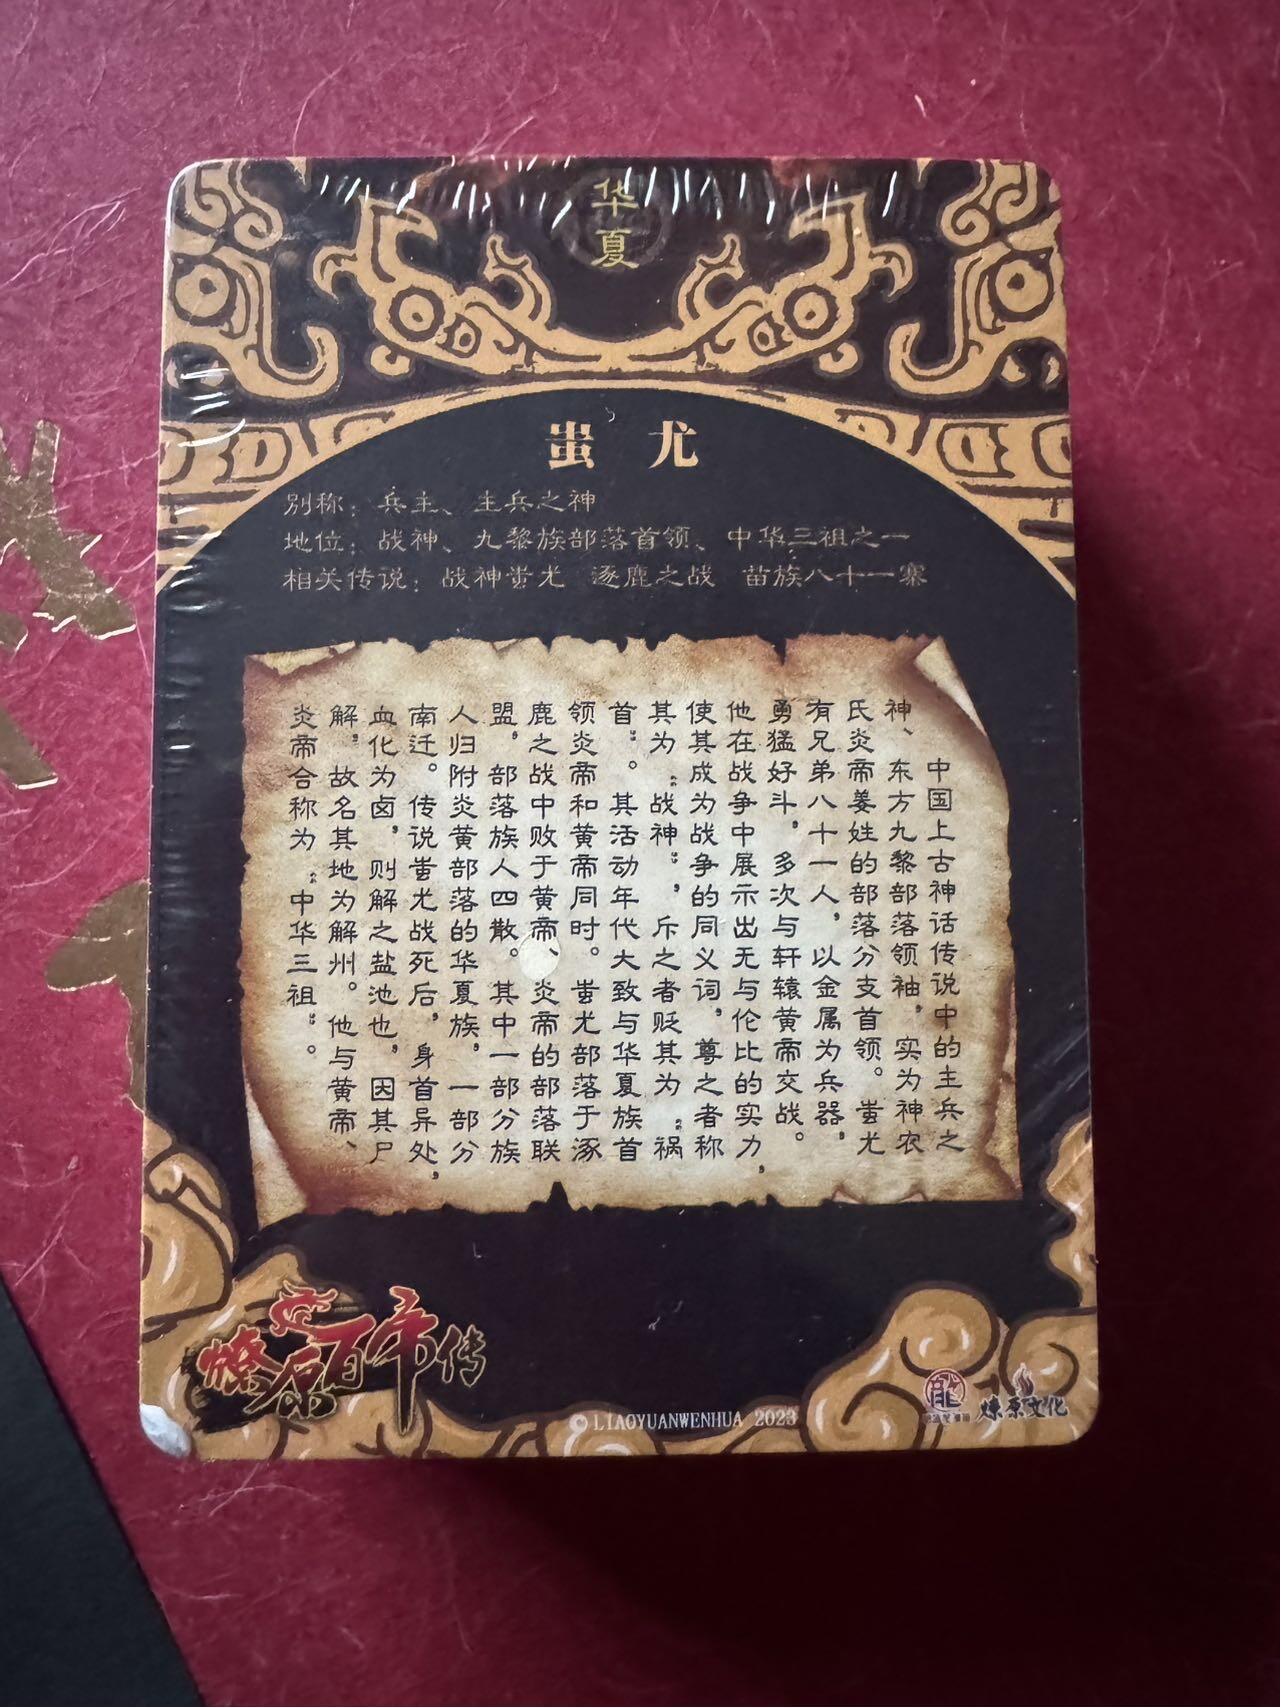 华夏
蚩尤
别称：兵主、主兵之神
地位：战神、九黎族部落首领、中华三祖之一
相关传说：战神蚩尤 逐鹿之战 苗族八十一寨
中国上古神话传说中的主兵之
神、东方九黎部落领袖，实为神农
氏炎帝姜姓的部落分支首领。蚩尤
有兄弟八十一人，以金属为兵器，
勇猛好斗，多次与轩辕黄帝交战。
他在战争中展示出无与伦比的实力，
使其成为战争的同义词，尊之者称
其为“战神”，斥之者贬其为“祸
首”。其活动年代大致与华夏族首
领炎帝和黄帝同时。蚩尤部落于涿
鹿之战中败于黄帝、炎帝的部落联
盟，部落族人四散。其中一部分族
人归附炎黄部落的华夏族，一部分
南迁。传说蚩尤战死后，身首异处，
血化为卤，则解之盐池也，因其尸
解，故名其地为解州。他与黄帝、
炎帝合称为“中华三祖”。
燎原百帝传
© LIAOYUANWENHUA 2023
龍
燎原文化